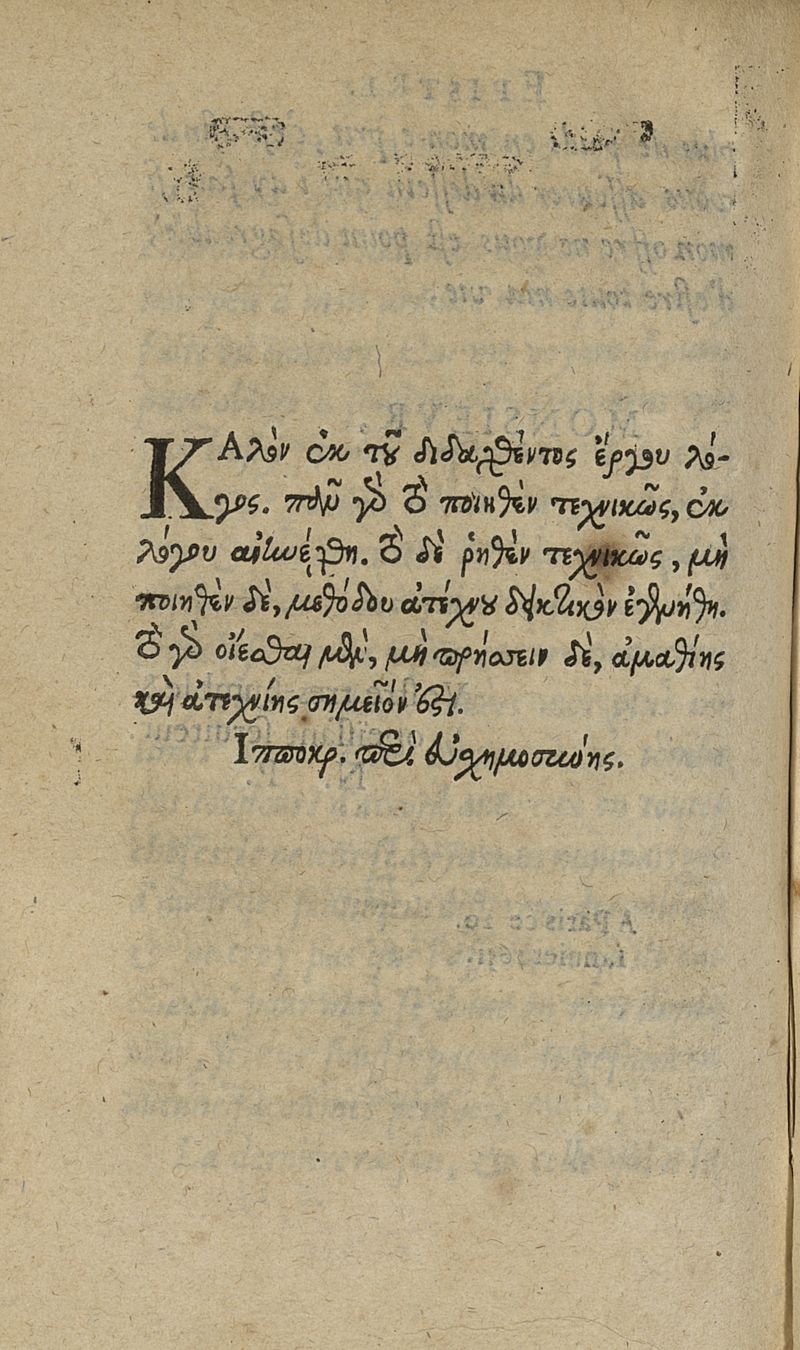 ΚΑλὸν ἐκ τοῦ διδαχθέντος ἔργου λό-
γος. πᾶν γὰρ τὸ ποιηθὲν τεχνικῶς, ἐκ
λόγου ἀνηνέχθη. τὸ δὲ ῥηθὲν τεχνικῶς, μὴ
ποιηθὲν δὲ, μεθόδου ἀτέχνου δεικτικὸν ἐγενήθη.
τὸ γὰρ οἴεσθαι μὲν, μὴ πρήσσειν δὲ, ἀμαθίης
καὶ ἀτεχνίης σημεῖόν ἐστι.
Ιπποκρ. περὶ εὐσχημοσύνης.